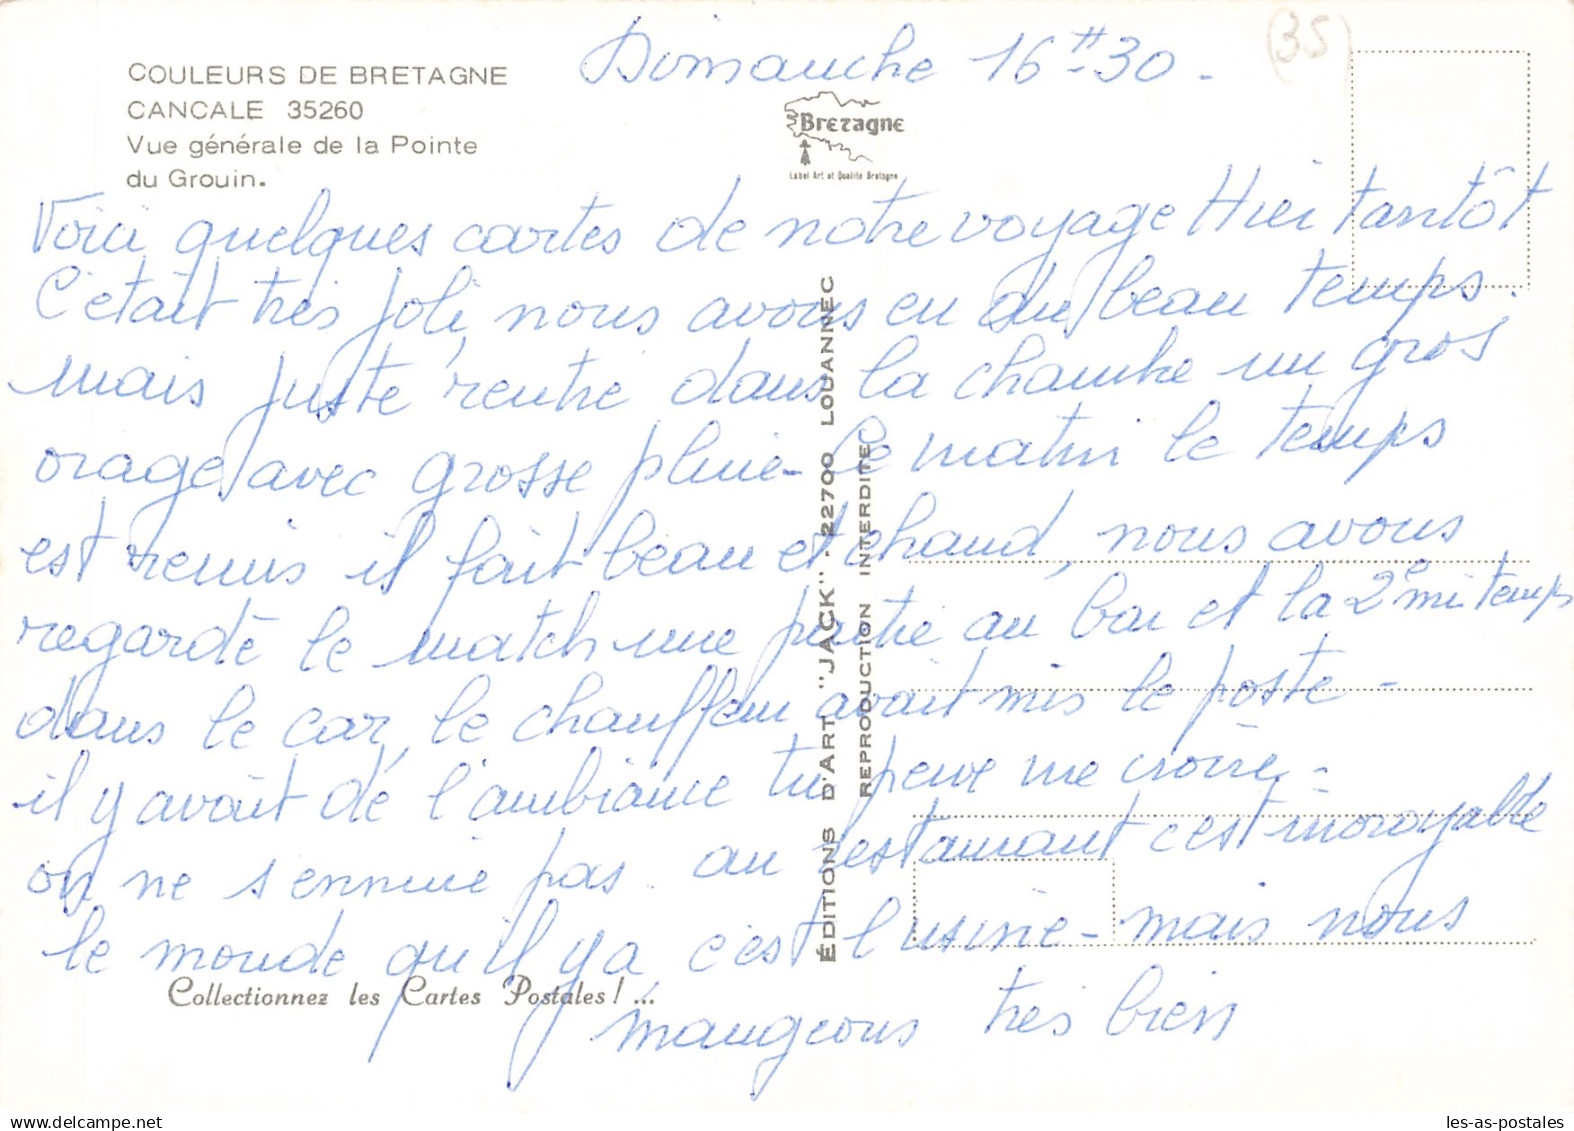 Dimanche 16H30.
(35)
COULEURS DE BRETAGNE
CANCALE 35260
Vue générale de la Pointe
du Grouin.
Bretagne
Label Art et Qualité Bretagne
Voici quelques cartes de notre voyage Hier tantôt
C'était très joli, nous avons eu du beau temps.
mais juste rentré dans la chambre un gros
orage avec grosse pluie - le matin le temps
est remis il fait beau et chaud, nous avons
regardé le match une partie au bar et la 2e mi temps
dans le car, le chauffeur avait mis le poste -
il y avait de l'ambiance tu peux me croire, -
on ne s'ennuie pas. au restaurant c'est incroyable
le monde qu'il y a c'est l'usine - mais nous
mangeons très bien
ÉDITIONS D'ART "JACK" - 22700 LOUANNEC
REPRODUCTION INTERDITE
Collectionnez les Cartes Postales! ...
les-as-postales